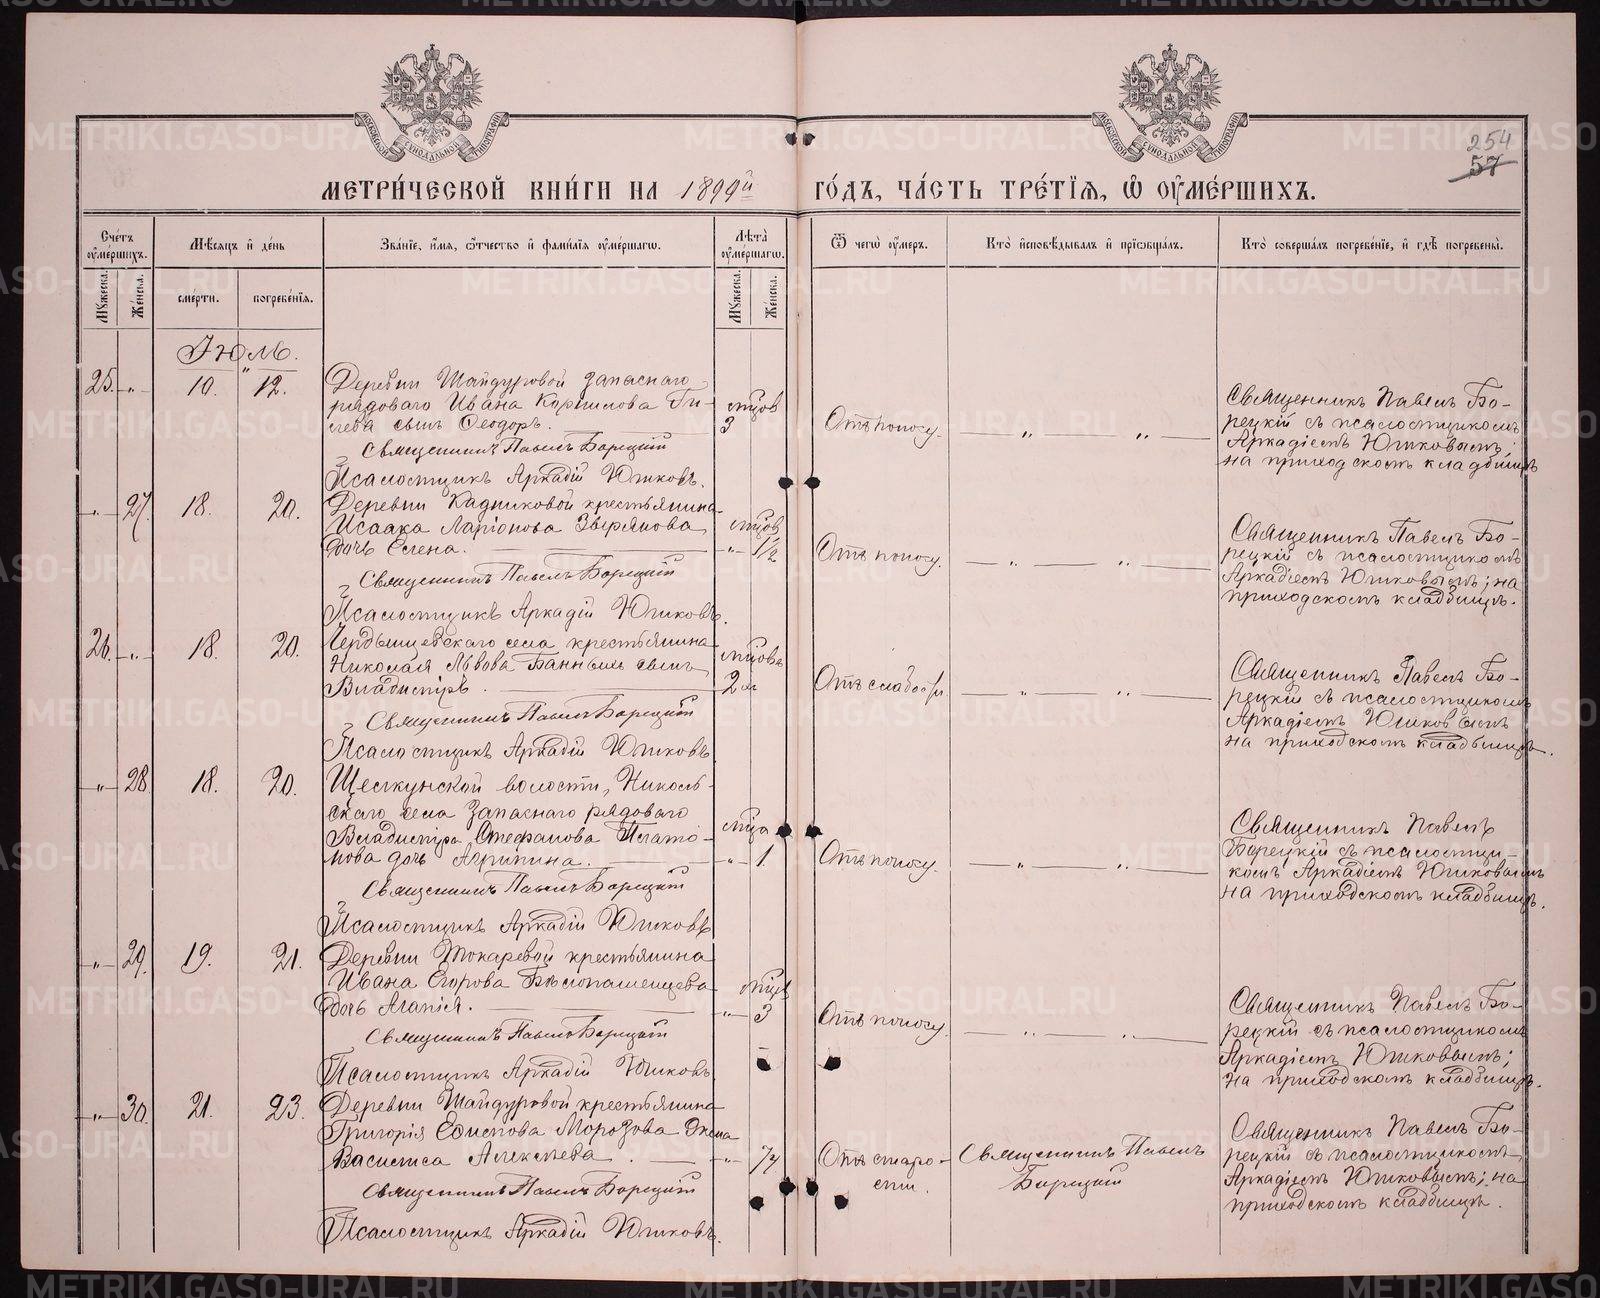 254
57
МЕТРИ́ЧЕСКОЙ КНИ́ГИ НА 1899й ГО́ДЪ, ЧА́СТЬ ТРЕ́ТЇѦ, Ѡ҆ ОУ҆МЕ́РШИХЪ.
Сче́тъ оу҆ме́ршихъ.
Мꙋ́жеска.
Же́нска.
Мѣ́сѧцъ и҆ де́нь
сме́рти.
погребе́нїѧ.
Зва́нїе, и҆́мѧ, ѻ҆́тчество и҆ фами́лїѧ оу҆ме́ршагѡ.
Лѣ́та оу҆ме́ршагѡ.
Мꙋ́жеска.
Же́нска.
Ѿ чегѡ̀ оу҆́меръ.
Кто̀ и҆сповѣ́дывалъ и҆ прїѡбща́лъ.
Кто̀ соверша́лъ погребе́нїе, и҆ гдѣ̀ погребены̀.
Іюль.
25. „ 10. 12.
Деревни Шайдуровой запаснаго
рядоваго Ивана Корнилова Ги-
лева сынъ Ѳеодоръ.
Священникъ Павелъ Борецкій
Псаломщикъ Аркадій Юшковъ.
мцов
3
Отъ поносу.
„ „
Священникъ Павелъ Бо-
рецкій съ псаломщикомъ
Аркадіемъ Юшковымъ;
на приходскомъ кладбищѣ
„ 27. 18. 20.
Деревни Кадниковой крестьянина
Исаака Ларіонова Звѣрянова
дочь Елена.
Священникъ Павелъ Борецкій
Псаломщикъ Аркадій Юшковъ.
мцов
„ 1½
Отъ поносу.
„ „
Священникъ Павелъ Бо-
рецкій съ псаломщикомъ
Аркадіемъ Юшковымъ; на
приходскомъ кладбищѣ.
26. „ 18. 20.
Чердынцевскаго села крестьянина
Николая Львова Банныхъ сынъ
Владиміръ.
Священникъ Павелъ Борецкій
Псаломщикъ Аркадій Юшковъ
мцовъ
2
Отъ слабости
„ „
Священникъ Павелъ Бо-
рецкій съ псаломщикомъ
Аркадіемъ Юшковымъ
на приходскомъ кладбищѣ.
„ 28 18. 20.
Щелкунской волости, Николь-
скаго села запаснаго рядоваго
Владиміра Стефанова Плато-
нова дочь Агрипина.
Священникъ Павелъ Борецкій
Псаломщикъ Аркадій Юшковъ
мца
„ 1.
Отъ поносу.
„ „
Священникъ Павелъ
Борецкій съ псаломщи-
комъ Аркадіемъ Юшковымъ
на приходскомъ кладбищѣ.
„ 29. 19. 21.
Деревни Токаревой крестьянина
Ивана Егорова Бѣлопашенцева
дочь Агапія.
Священникъ Павелъ Борецкій
Псаломщикъ Аркадій Юшковъ.
мцев
„ 3
Отъ поносу.
„ „
Священникъ Павелъ Бо-
рецкій съ псаломщикомъ
Аркадіемъ Юшковымъ;
на приходскомъ кладбищѣ.
„ 30. 21. 23.
Деревни Шайдуровой крестьянина
Григорія Есипова Морозова жена
Василиса Алексѣева.
Священникъ Павелъ Борецкій
Псаломщикъ Аркадій Юшковъ.
„ 74
Отъ старо-
сти.
Священникъ Павелъ
Борецкій
Священникъ Павелъ Бо-
рецкій съ псаломщикомъ
Аркадіемъ Юшковымъ; на
приходскомъ кладбищѣ.
METRIKI.GASO-URAL.RU